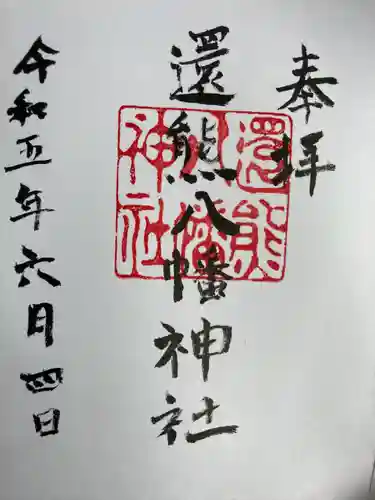 奉拝
還熊八幡神社
還熊八幡神社
今和五年六月四日